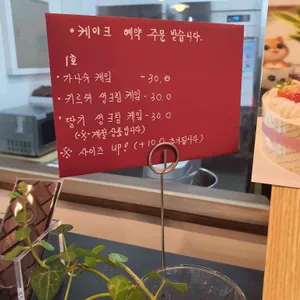 • 케이크 예약 주문 받습니다.
1호
• 가나슈 케잌 - 30.0
• 키르쉬 생크림 케잌 - 30.0
• 딸기 생크림 케잌 - 30.0
(※ 계절 상품입니다)
※ 사이즈 UP! (+10.0 추가됩니다)